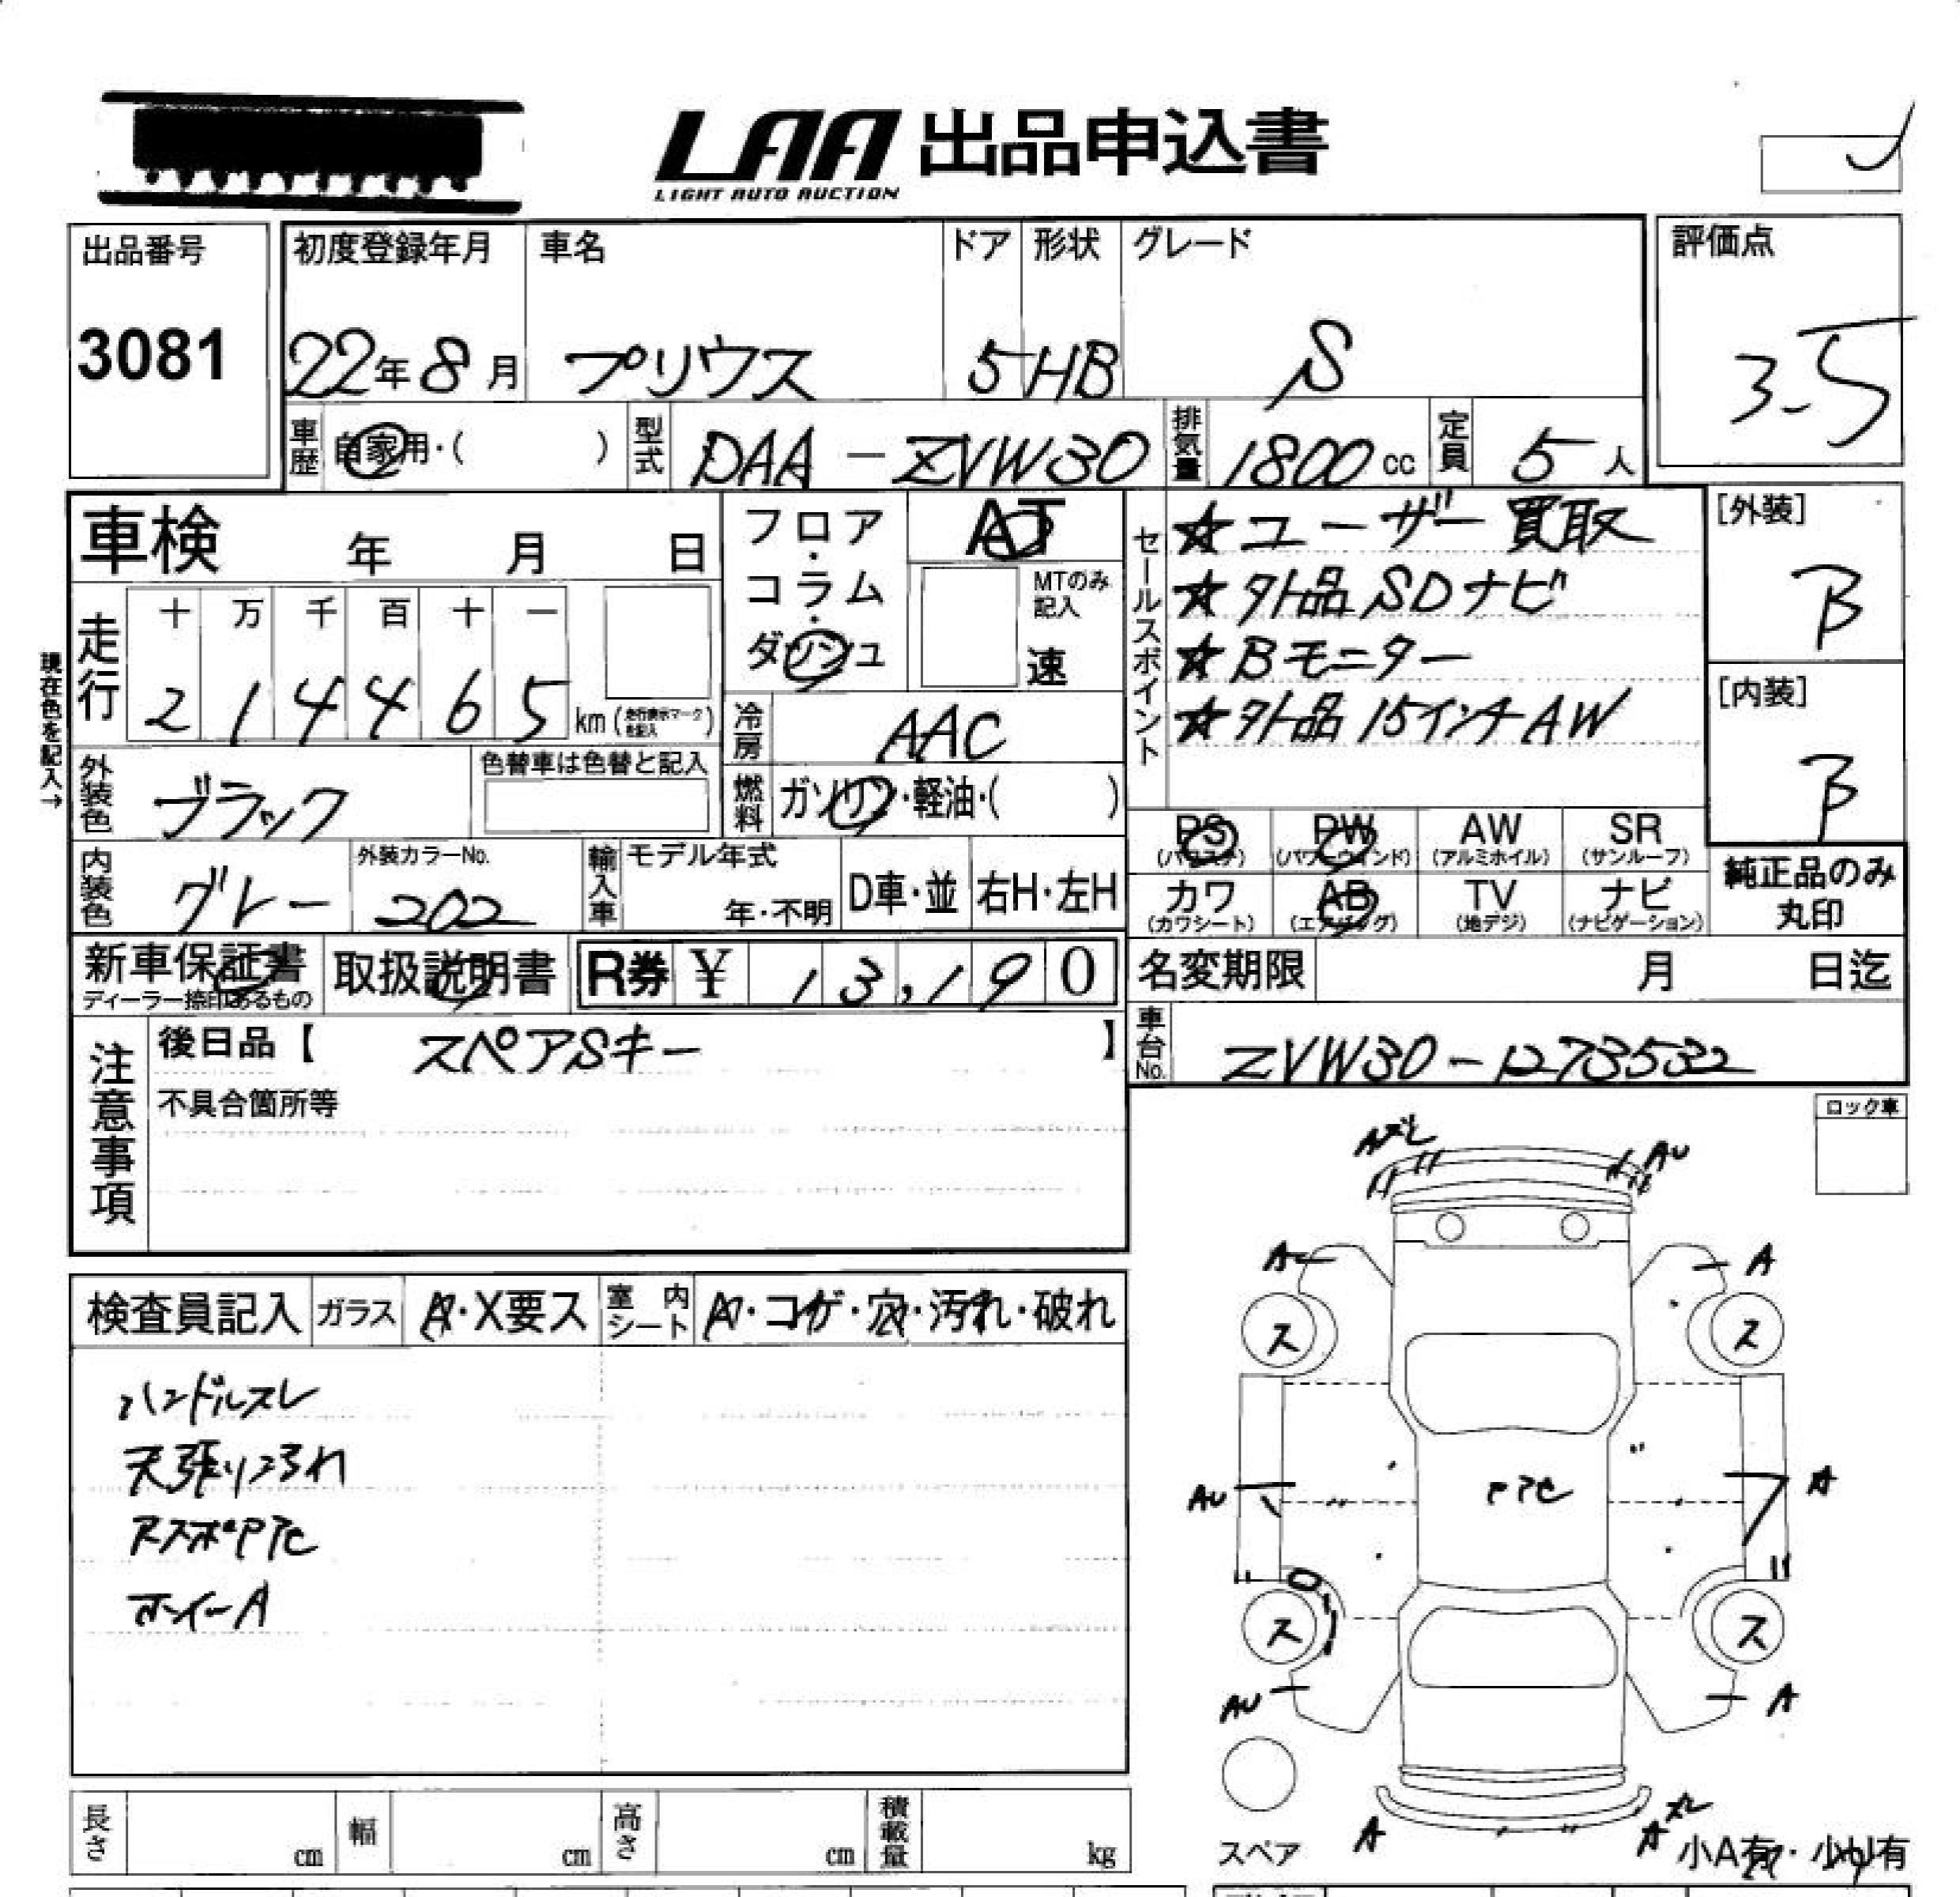 LAA 出品申込書
LIGHT AUTO AUCTION
出品番号
3081
初度登録年月
22年 8月
車名
プリウス
ドア
5
形状
HB
グレード
S
評価点
3.5
車歴 自家用・( )
型式 DAA-ZVW30
排気量 1800 cc
定員 5 人
車検 年 月 日
フロア・コラム・ダッシュ
AT
MTのみ記入
速
セールスポイント
☆ユーザー買取
☆外品SDナビ
☆Bモニター
☆外品15インチAW
[外装]
B
[内装]
B
現在色を記入→
走行
十 万 千 百 十 一
2 1 4 4 6 5 km (走行表示マークを記入)
冷房 AAC
外装色 ブラック
色替車は色替と記入
燃料 ガソリン・軽油・( )
内装色 グレー
外装カラーNo.
202
輸入車
モデル年式
年・不明
D車・並
右H・左H
PS (パワステ)
PW (パワーウインド)
AW (アルミホイル)
SR (サンルーフ)
カワ (カワシート)
AB (エアバッグ)
TV (地デジ)
ナビ (ナビゲーション)
純正品のみ
丸印
新車保証書
ディーラー捺印あるもの
取扱説明書
R券 ¥ 13,190
名変期限 月 日迄
注意事項
後日品【 スペアSキー 】
不具合箇所等
車台No. ZVW30-1273532
ロック車
検査員記入
ガラス A・X要ス
室内シート A・コゲ・穴・汚れ・破れ
ハンドルスレ
天張りよごれ
ホイールA
AU
A
A
ス
ス
AU
A
ス
ス
AU
A
A
A
スペア
小A有・小U有
長さ cm
幅 cm
高さ cm
積載量 kg